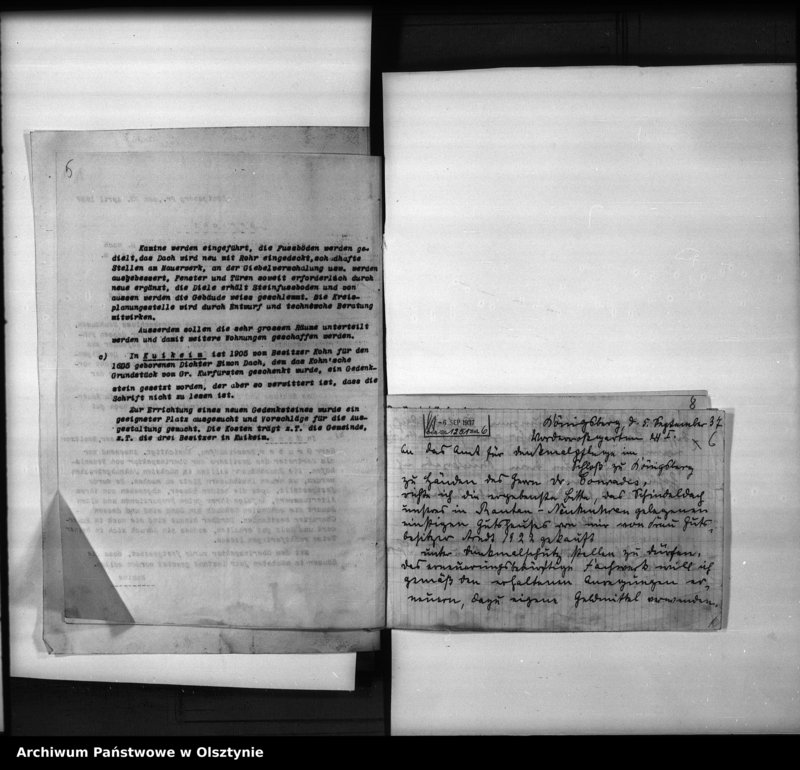 6
Kamine werden eingeführt, die Fussböden werden ge-
dielt, das Dach wird neu mit Rohr eingedeckt, schadhafte
Stellen am Mauerwerk, an der Giebelverschalung usw. werden
ausgebessert, Fenster und Türen soweit erforderlich durch
neue ergänzt, die Diele erhält Steinfussboden und von
aussen werden die Gebäude weiss geschlemmt. Die Kreis-
planungsstelle wird durch Entwurf und technische Beratung
mitwirken.
Ausserdem sollen die sehr grossen Räume unterteilt
werden und damit weitere Wohnungen geschaffen werden.
c) In Kuikeim ist 1905 vom Besitzer Kohn für den
1605 geborenen Dichter Simon Dach, dem das Kohn'sche
Grundstück vom Gr. Kurfürsten geschenkt wurde, ein Gedenk-
stein gesetzt worden, der aber so verwittert ist, dass die
Schrift nicht zu lesen ist.
Zur Errichtung eines neuen Gedenksteines wurde ein
geeigneter Platz ausgesucht und Vorschläge für die Aus-
gestaltung gemacht. Die Kosten trägt z.T. die Gemeinde,
z.T. die drei Besitzer in Kuikeim.
8
-6. SEP 1937
Königsberg, d. 5. September 37.
6
An das Amt für Denkmalpflege im
Schloß zu Königsberg
zu Händen des Herrn Dr. Conrades,
richte ich die ergebenste Bitte, das Schindeldach
unseres in Rauten - gelegenen
einstigen Gutshauses von mir von Frau Guts-
besitzer Arndt 1922 gekauft
unter Denkmalschutz stellen zu dürfen.
Das erneuerungsbedürftige Fachwerk will ich
gemäß den erhaltenen Anregungen er-
neuern, dazu eigene Geldmittel verwenden.
Archiwum Państwowe w Olsztynie